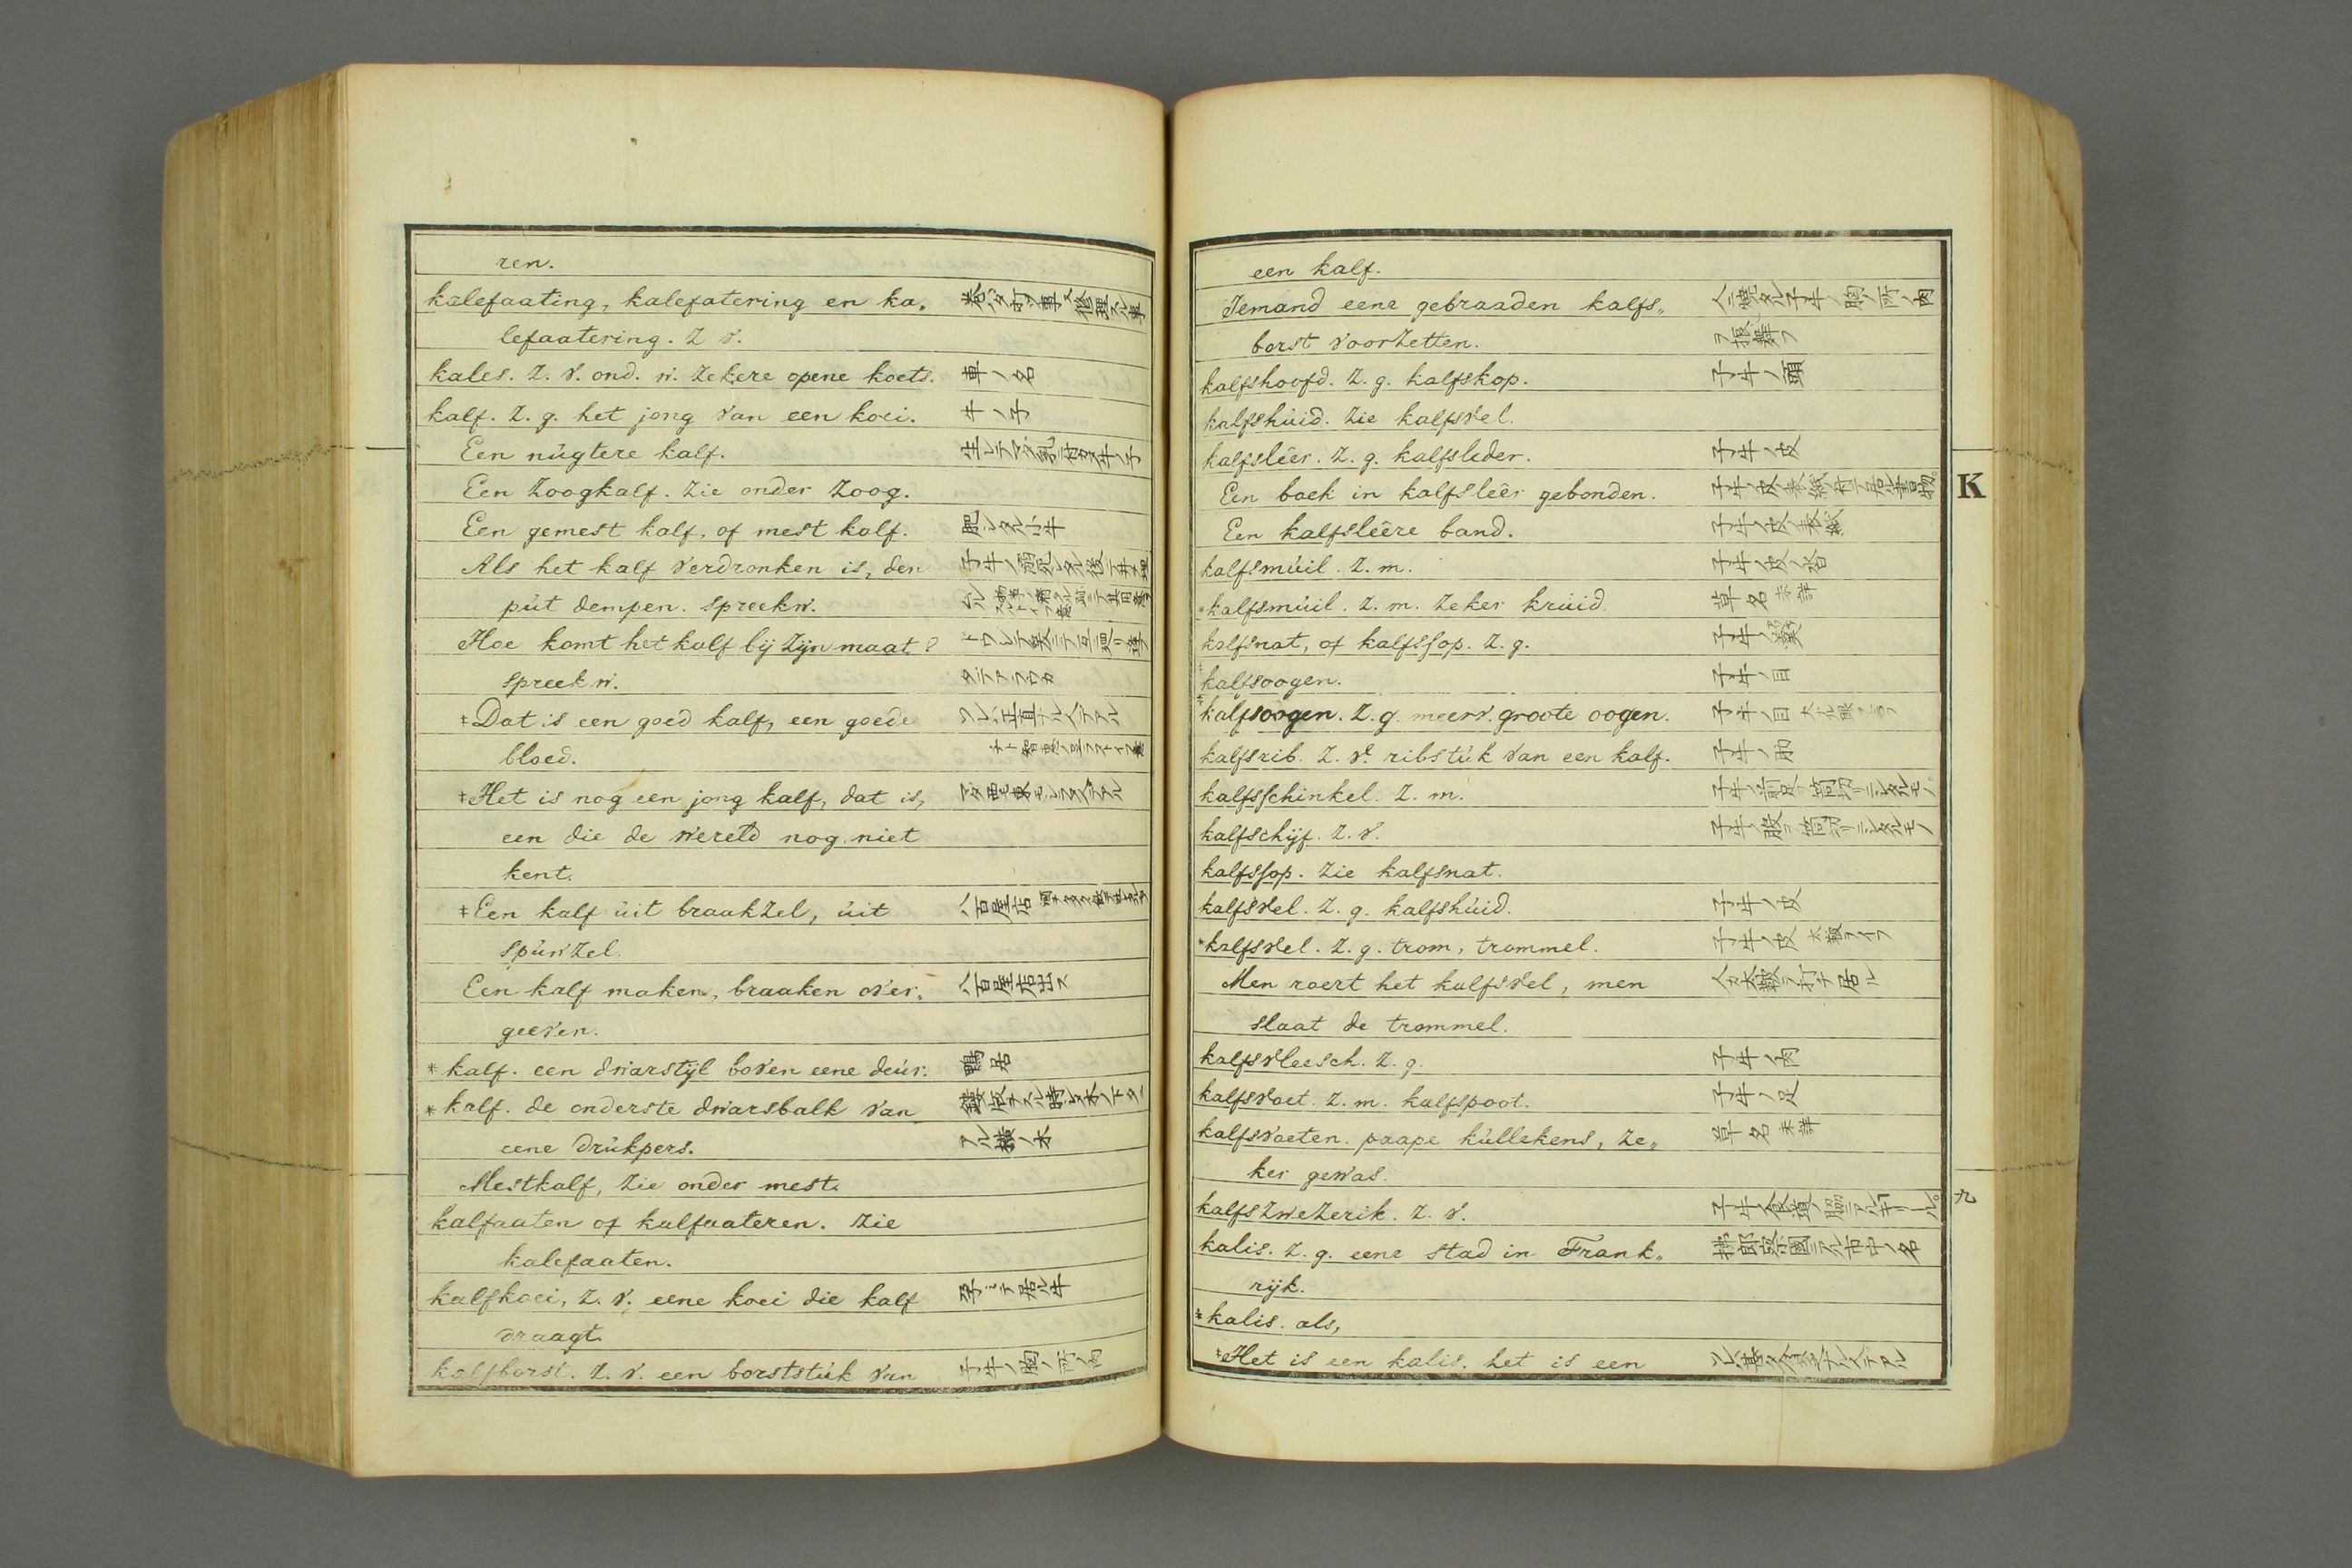 ren.
kalefaating, kalefatering en ka„
lefaatering. Z. v.
kales. Z. v. ond. w. Zekere opene koets. 車ノ名
kalf. Z. g. het jong van een koei. 牛ノ子
Een núgtere kalf.
Een Zoogkalf. Zie onder Zoog.
Een gemest kalf, of mest kalf. 肥シタル小牛
Als het kalf verdronken is, den
pút dempen. spreekw.
Hoe komt het kalf bij Zijn maat?
spreekw.
‡Dat is een goed kalf, een goede
bloed.
‡Het is nog een jong kalf, dat is,
een die de wereld nog niet
kent.
‡Een kalf úit braakzel, úit 八百屋店
spúwzel.
Een kalf maken, braaken over„ 八百屋店出ス
geeven.
*kalf. een dwarstijl boven eene deúr. 鴨居
*kalf. de onderste dwarsbalk van
eene drúkpers. アル横ノ木
Mestkalf, Zie onder mest.
kalfaaten of kalfaateren. Zie
kalefaaten.
kalfkoei, Z. v. eene koei die kalf 孕ミテ居ル牛
draagt.
kalfborst. Z. v. een borststúk van 子牛ノ胸ノ所ノ肉
een kalf.
Iemand eene gebraaden kalfs„ 人ニ焼タル子牛ノ胸ノ所ノ肉
borst voorzetten. ヲ振舞フ
kalfshoofd. Z. g. kalfskop. 子牛ノ頭
kalfshúid. Zie kalfsvel.
kalfsléêr. Z. g. kalfsleder. 子牛ノ皮
Een boek in kalfsleêr gebonden.
Een kalfsleêre band. 子牛ノ皮ノ表紙
kalfsmúil. Z. m.
*kalfsmúil. Z. m. Zeker krúid. 草名 未詳
kalfsnat, of kalfssop. Z. g.
‡kalfsoogen. 子牛ノ目
‡kalfsoogen. Z. g. meerv. groote oogen. 子牛ノ目
kalfsrib. Z. v. ribstúk van een kalf. 子牛ノ肋
kalfsschinkel. Z. m.
kalfschijf. Z. v.
kalfssop. Zie kalfsnat.
kalfsvel. Z. g. kalfshúid. 子牛ノ皮
*kalfsvel. Z. g. trom, trommel. 子牛ノ皮 太鼓ヲイフ
Men roert het kalfsvel, men 今太鼓ヲ打テ居ル
slaat de trommel.
kalfsvleesch. Z. g. 子牛ノ肉
kalfsvoet. Z. m. kalfspoot. 子牛ノ足
kalfsvoeten. paape kúllekens, Ze„ 草名 未詳
ker gewas.
kalfszwezerik. Z. v.
kalis. Z. g. eene stad in Frank„ 拂郎察國ニアル市中ノ名
rijk.
‡kalis. als,
‡Het is een kalis. het is een
K
九